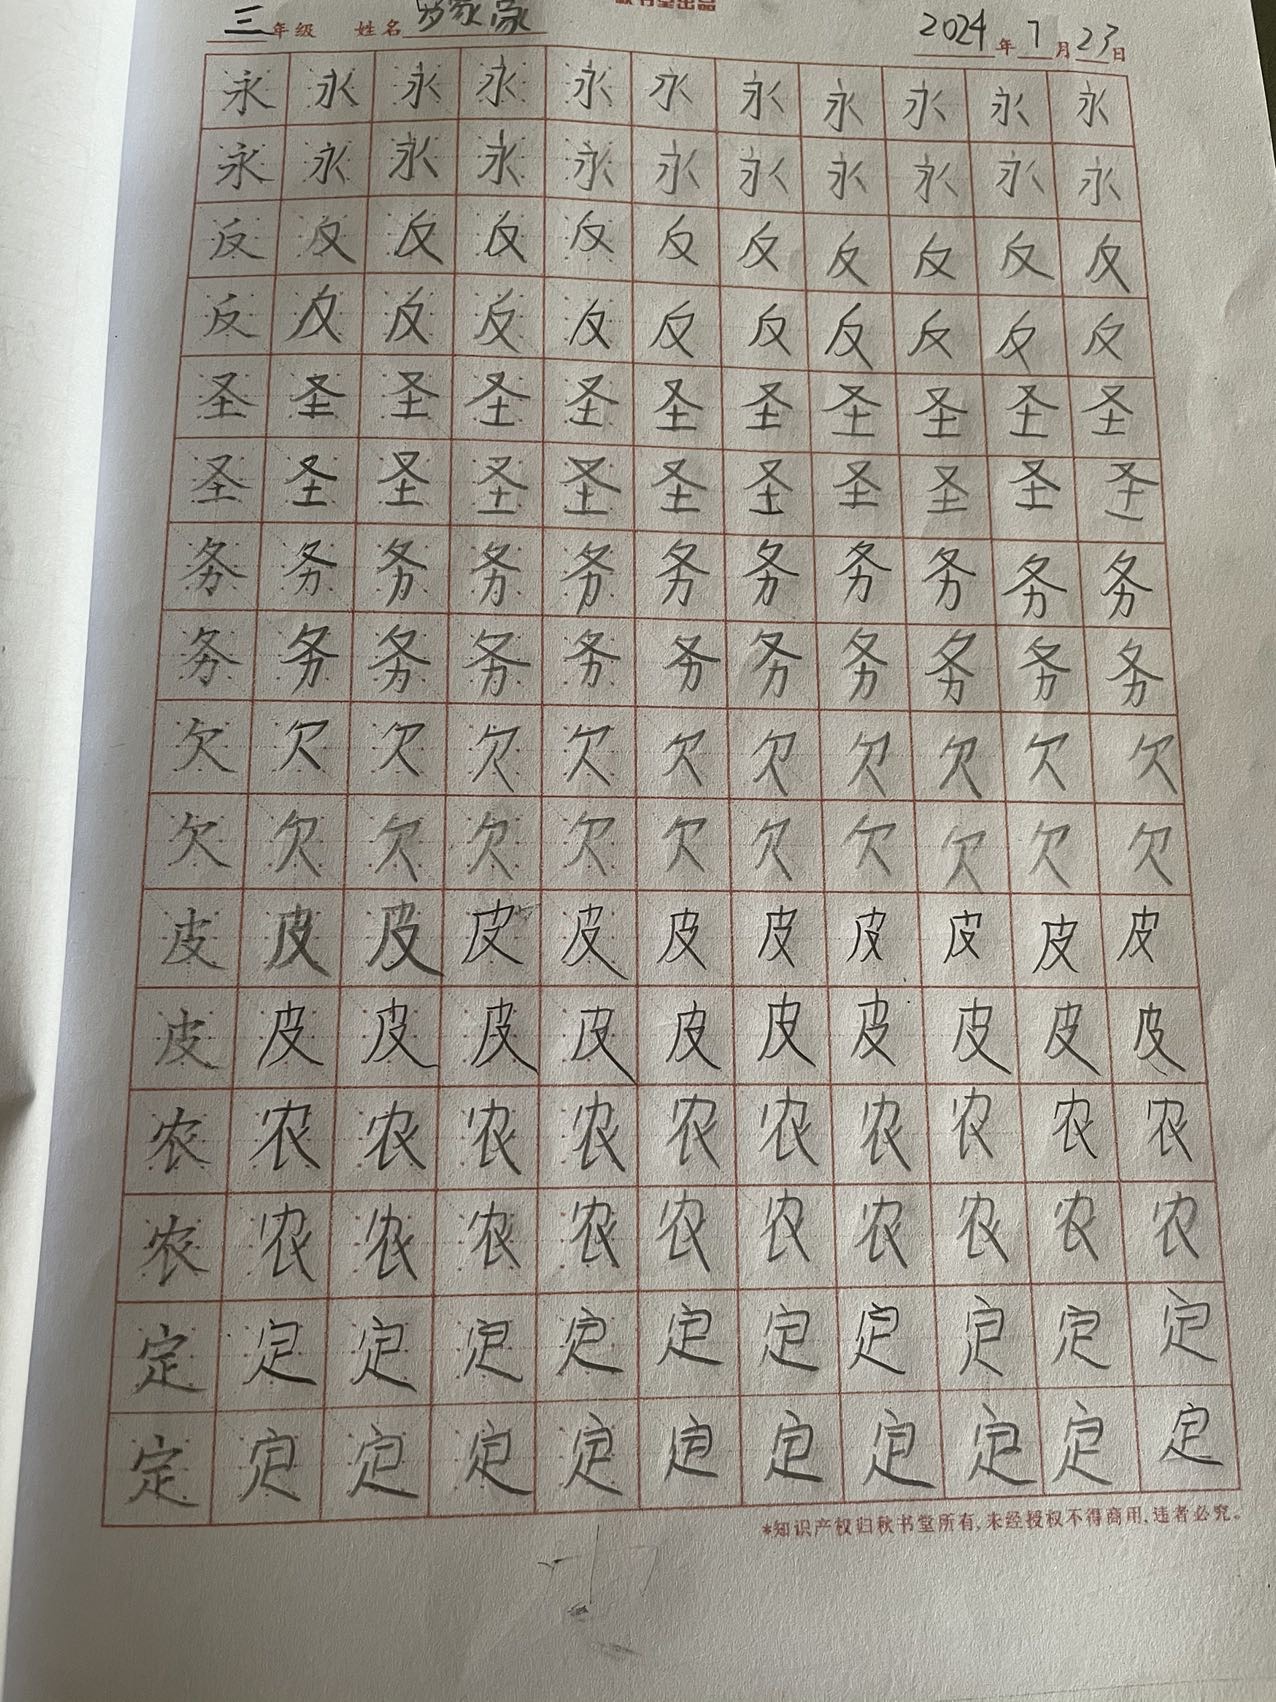 三年级 姓名 2024年7月23日
永永永永永永永永永永永
永永永永永永永永永永永
反反反反反反反反反反反
反反反反反反反反反反反
圣圣圣圣圣圣圣圣圣圣圣
圣圣圣圣圣圣圣圣圣圣圣
务务务务务务务务务务务
务务务务务务务务务务务
欠欠欠欠欠欠欠欠欠欠欠
欠欠欠欠欠欠欠欠欠欠欠
皮皮皮皮皮皮皮皮皮皮皮
皮皮皮皮皮皮皮皮皮皮皮
农农农农农农农农农农农
农农农农农农农农农农农
定定定定定定定定定定定
定定定定定定定定定定定
*知识产权归秋书堂所有,未经授权不得商用,违者必究。